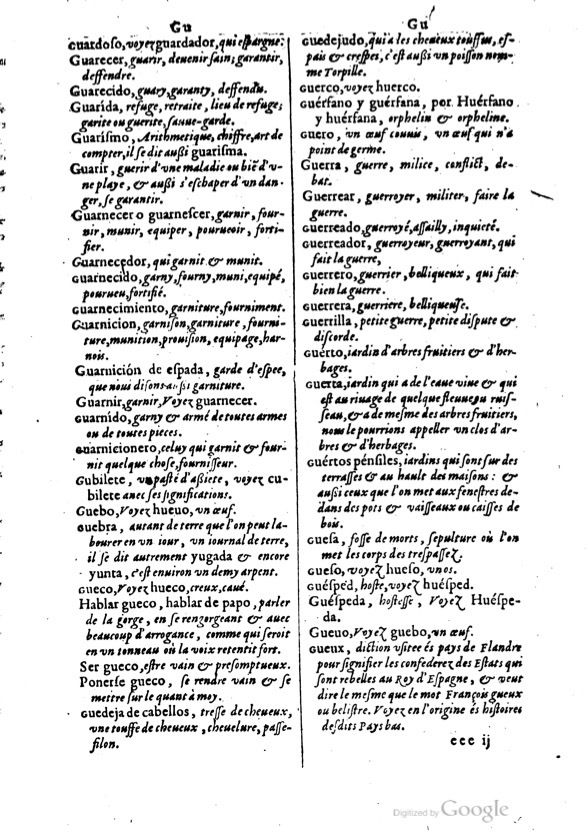 Gu
Guardoso, voyez guardador, qui espargne:
Guarecer, guarir, devenir sain; garantir,
deffendre.
Guarecido, guary, garanty, deffendu.
Guarida, refuge, retraite, lieu de refuge;
garite ou guerite, sauue-garde.
Guarismo, Arithmetique, chiffre, art de
compter, il se dit außi guarisma.
Guarir, guerir d'une maladie ou bië d'v-
ne playe, & aussi s'eschaper d'vn dan-
ger, se garantir.
Guarnecer o guarnescer, garnir, four-
nir, munir, equiper, pourueoir, forti-
fier.
Guarnecedor, qui garnit & munit.
Guarnecido, garny, fourny, muni, equipé,
pourueu, fortifié.
Guarnecimiento, garniture, fourniment.
Guarnicion, garnison, garniture, fourni-
ture, munition, prouision, equipage, har-
nois.
Guarnición de espada, garde d'espee,
que nous disons aussi garniture.
Guarnir, garnir, Voyez guarnecer.
Guarnido, garny & armé de toutes armes
ou de toutes pieces.
Guarnicionero, celuy qui garnit & four-
nit quelque chose, fournisseur.
Gubilete, vn pasté d'aßiete, voyez cu-
bilete auec ses significations.
Guebo, Voyez hueuo, vn œuf.
Guebra, autant de terre que l'on peut la-
bourer en vn iour, vn iournal de terre,
il se dit autrement yugada & encore
yunta, c'est enuiron vn demy arpent.
Gueco, Voyez hueco, creux, caué.
Hablar gueco, hablar de papo, parler
de la gorge, en se rengorgeant & auec
beaucoup d'arrogance, comme qui seroit
en vn tonneau où la voix retentit fort.
Ser gueco, estre vain & presomptueux.
Ponerse gueco, se rendre vain & se
mettre sur le quant à moy.
Guedeja de cabellos, tresse de cheueux,
vne touffe de cheueux, cheuelure, passe-
filon.
Gu
Guedejudo, qui a les cheueux touffus, es-
pais & crespes, c'est außi vn poisson nom-
me Torpille.
Guerco, voyez huerco.
Guérfano y guérfana, por Huérfano
y huérfana, orphelin & orpheline.
Guero, vn œuf couuis, vn œuf qui n'a
point de germe.
Guerra, guerre, milice, conflict, de-
bat.
Guerrear, guerroyer, militer, faire la
guerre.
Guerreado, guerroyé, assailly, inquieté.
Guerreador, guerroyeur, guerroyant, qui
fait la guerre,
Guerrero, guerrier, belliqueux, qui fait
bien la guerre.
Guerrera, guerriere, belliqueuse.
Guerrilla, petite guerre, petite dispute &
discorde.
Guérto, iardin d'arbres fruitiers & d'her-
bages.
Guerta, iardin qui a de l'eaue viue & qui
est au riuage de quelque fleuue ou ruis-
seau, & a de mesme des arbres fruitiers,
nous le pourrions appeller vn clos d'ar-
bres & d'herbages.
Guértos pénsiles, iardins qui sont sur des
terrasses & au hault des maisons: &
außi ceux que l'on met aux fenestres de-
dans des pots & vaisseaux ou caisses de
bois.
Guesa, fosse de morts, sepulture où l'on
met les corps des trespassez.
Gueso, voyez hueso, vn os.
Guésped, hoste, voyez huésped.
Guéspeda, hostesse, Voyez Huéspe-
da.
Gueuo, Voyez guebo, vn œuf.
Gueux, diction vsitee és pays de Flandre
pour signifier les confederez des Estats qui
sont rebelles au Roy d'Espagne, & veut
dire le mesme que le mot François gueux
ou belistre. Voyez en l'origine és histoires
desdits Pays bas.
eee ij
Digitized by Google